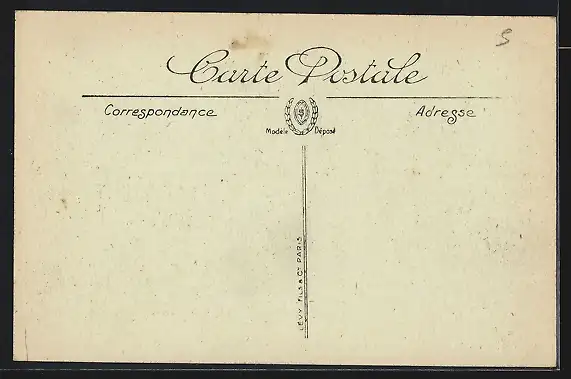 5
Carte Postale
Correspondance
Adresse
Modèle Déposé
LÉVY FILS & Cie PARIS